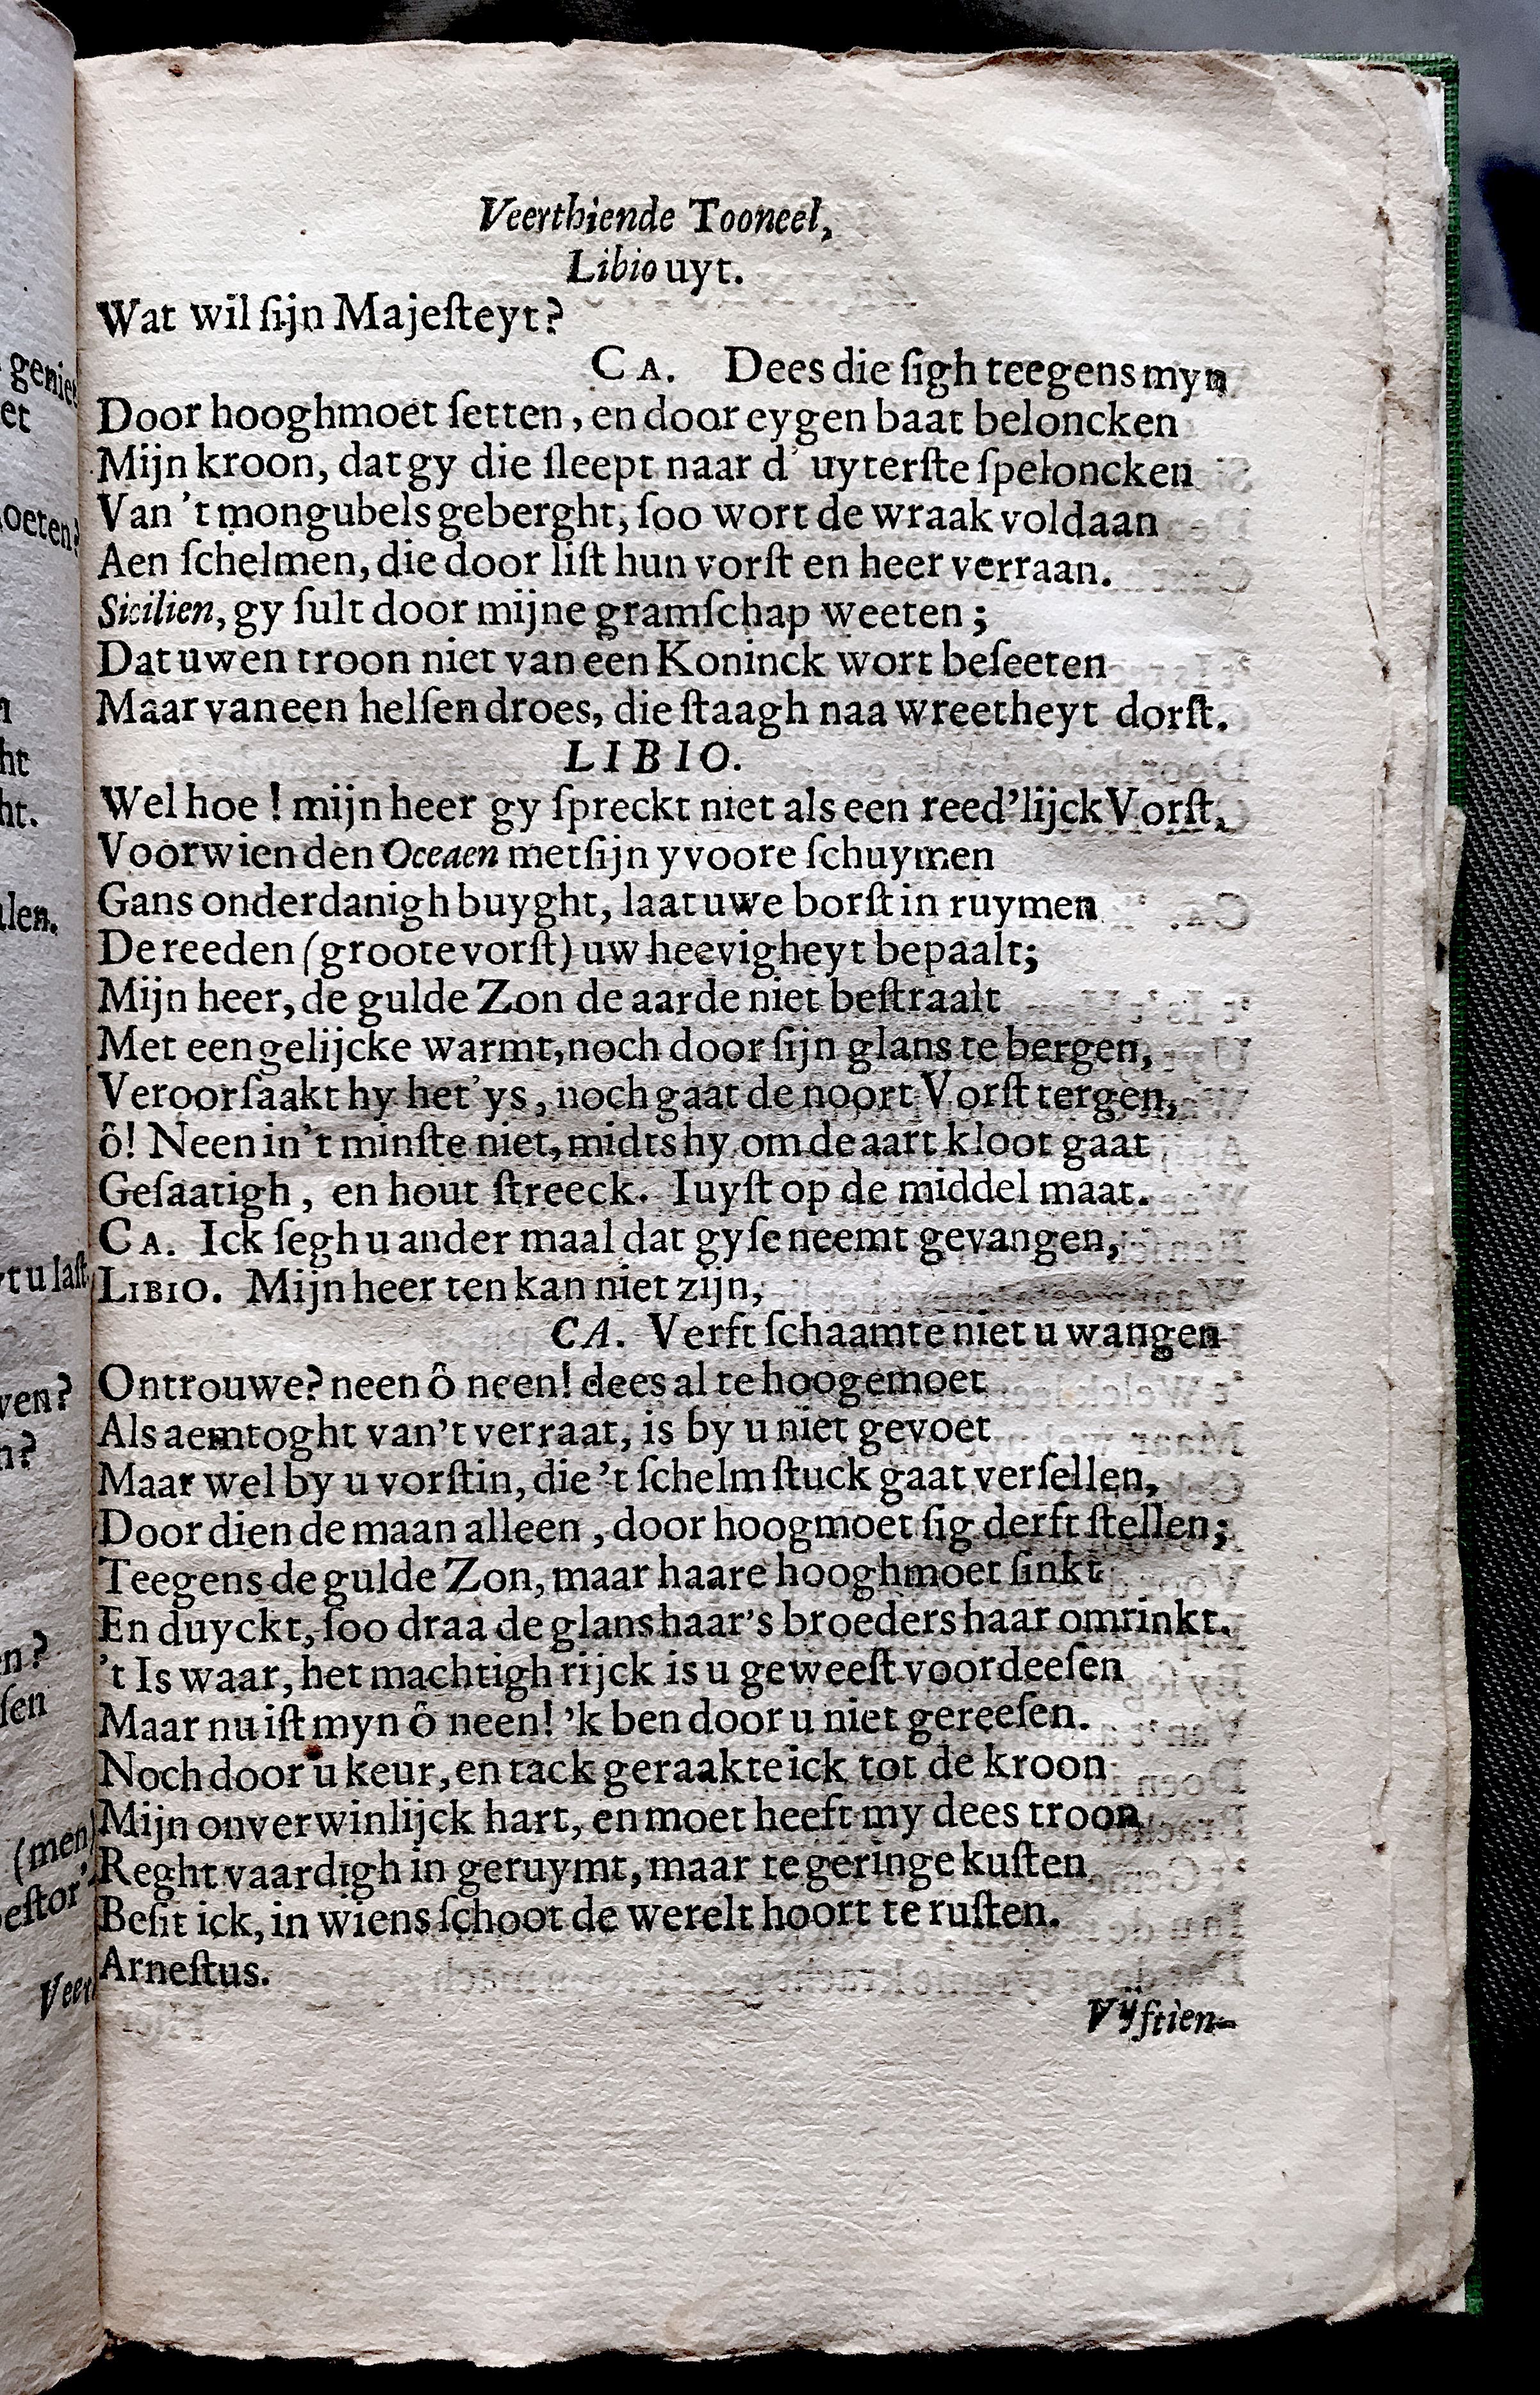 Veerthiende Tooneel,
Libio uyt.
Wat wil ſijn Majeſteyt?
CA. Dees die ſigh teegens myn
Door hooghmoet ſetten, en door eygen baat beloncken
Mijn kroon, dat gy die ſleept naar d' uyterſte ſpeloncken
Van 't mongubels geberght, ſoo wort de wraak voldaan
Aen ſchelmen, die door liſt hun vorſt en heer verraan.
Sicilien, gy ſult door mijne gramſchap weeten;
Dat uwen troon niet van een Koninck wort beſeeten
Maar van een helſen droes, die ſtaagh naa wreetheyt dorſt.
LIBIO.
Wel hoe! mijn heer gy ſpreckt niet als een reed'lijck Vorſt,
Voor wien den Oceaen met ſijn yvoore ſchuymen
Gans onderdanigh buyght, laat uwe borſt in ruymen
De reeden (groote vorſt) uw heevigheyt bepaalt;
Mijn heer, de gulde Zon de aarde niet beſtraalt
Met een gelijcke warmt, noch door ſijn glans te bergen,
Veroorſaakt hy het'ys, noch gaat de noort Vorſt tergen,
ô! Neen in't minſte niet, midts hy om de aart kloot gaat
Geſaatigh, en hout ſtreeck. Iuyſt op de middel maat.
CA. Ick ſegh u ander maal dat gy ſe neemt gevangen,
LIBIO. Mijn heer ten kan niet zijn,
CA. Verft ſchaamte niet u wangen
Ontrouwe? neen ô neen! dees al te hooge moet
Als aemtoght van't verraat, is by u niet gevoet
Maar wel by u vorſtin, die 't ſchelmſtuck gaat verſellen,
Door dien de maan alleen, door hoogmoet ſig derft ſtellen;
Teegens de gulde Zon, maar haare hooghmoet ſinkt
En duyckt, ſoo draa de glans haar's broeders haar omrinkt.
't Is waar, het machtigh rijck is u geweeſt voor deeſen
Maar nu iſt myn ô neen! 'k ben door u niet gereeſen.
Noch door u keur, en tack geraakte ick tot de kroon
Mijn onverwinlijck hart, en moet heeft my dees troon
Reghtvaardigh in geruymt, maar te geringe kuſten
Beſit ick, in wiens ſchoot de werelt hoort te ruſten.
Arneſtus.
Vijftien-